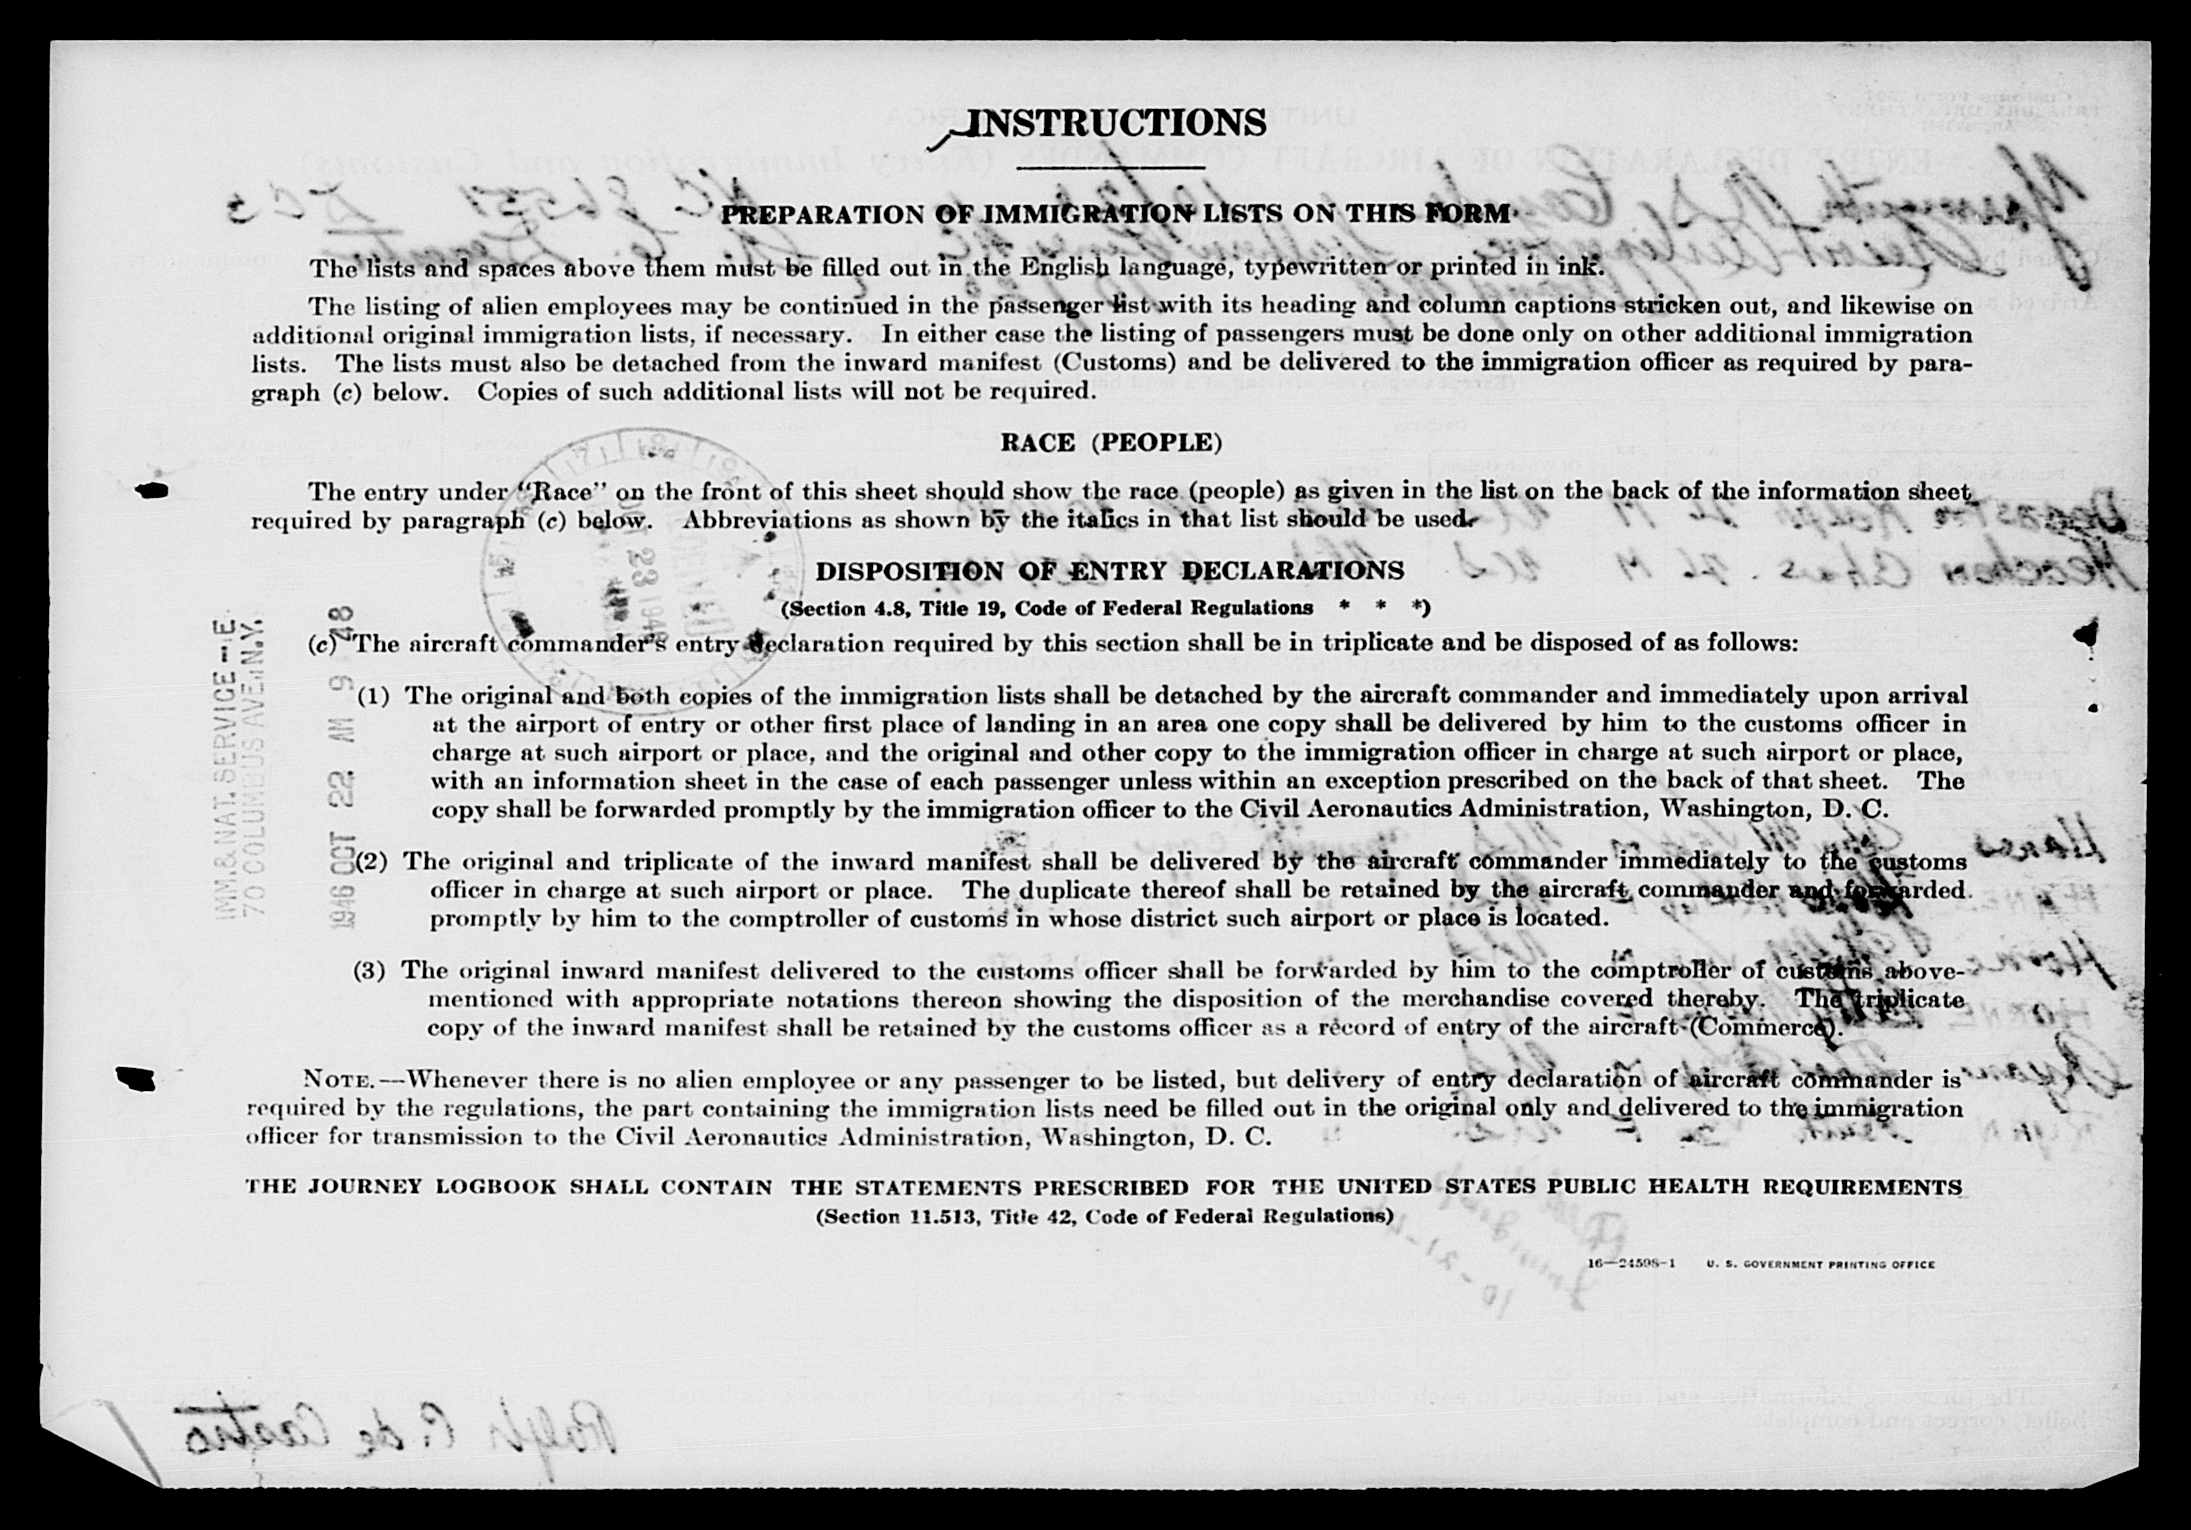 INSTRUCTIONS
PREPARATION OF IMMIGRATION LISTS ON THIS FORM
The lists and spaces above them must be filled out in the English language, typewritten or printed in ink.
The listing of alien employees may be continued in the passenger list with its heading and column captions stricken out, and likewise on
additional original immigration lists, if necessary. In either case the listing of passengers must be done only on other additional immigration
lists. The lists must also be detached from the inward manifest (Customs) and be delivered to the immigration officer as required by para-
graph (c) below. Copies of such additional lists will not be required.
RACE (PEOPLE)
The entry under “Race” on the front of this sheet should show the race (people) as given in the list on the back of the information sheet
required by paragraph (c) below. Abbreviations as shown by the italics in that list should be used.
DISPOSITION OF ENTRY DECLARATIONS
(Section 4.8, Title 19, Code of Federal Regulations * * *)
(c) The aircraft commander's entry declaration required by this section shall be in triplicate and be disposed of as follows:
(1) The original and both copies of the immigration lists shall be detached by the aircraft commander and immediately upon arrival
at the airport of entry or other first place of landing in an area one copy shall be delivered by him to the customs officer in
charge at such airport or place, and the original and other copy to the immigration officer in charge at such airport or place,
with an information sheet in the case of each passenger unless within an exception prescribed on the back of that sheet. The
copy shall be forwarded promptly by the immigration officer to the Civil Aeronautics Administration, Washington, D. C.
(2) The original and triplicate of the inward manifest shall be delivered by the aircraft commander immediately to the customs
officer in charge at such airport or place. The duplicate thereof shall be retained by the aircraft commander and forwarded
promptly by him to the comptroller of customs in whose district such airport or place is located.
(3) The original inward manifest delivered to the customs officer shall be forwarded by him to the comptroller of customs above-
mentioned with appropriate notations thereon showing the disposition of the merchandise covered thereby. The triplicate
copy of the inward manifest shall be retained by the customs officer as a record of entry of the aircraft (Commerce).
NOTE.—Whenever there is no alien employee or any passenger to be listed, but delivery of entry declaration of aircraft commander is
required by the regulations, the part containing the immigration lists need be filled out in the original only and delivered to the immigration
officer for transmission to the Civil Aeronautics Administration, Washington, D. C.
THE JOURNEY LOGBOOK SHALL CONTAIN THE STATEMENTS PRESCRIBED FOR THE UNITED STATES PUBLIC HEALTH REQUIREMENTS
(Section 11.513, Title 42, Code of Federal Regulations)
16—24598-1 U. S. GOVERNMENT PRINTING OFFICE
IMM. & NAT. SERVICE
70 COLUMBUS AVE. N.Y.
1946 OCT 22 AM 9 48
Ralph C. de Castro